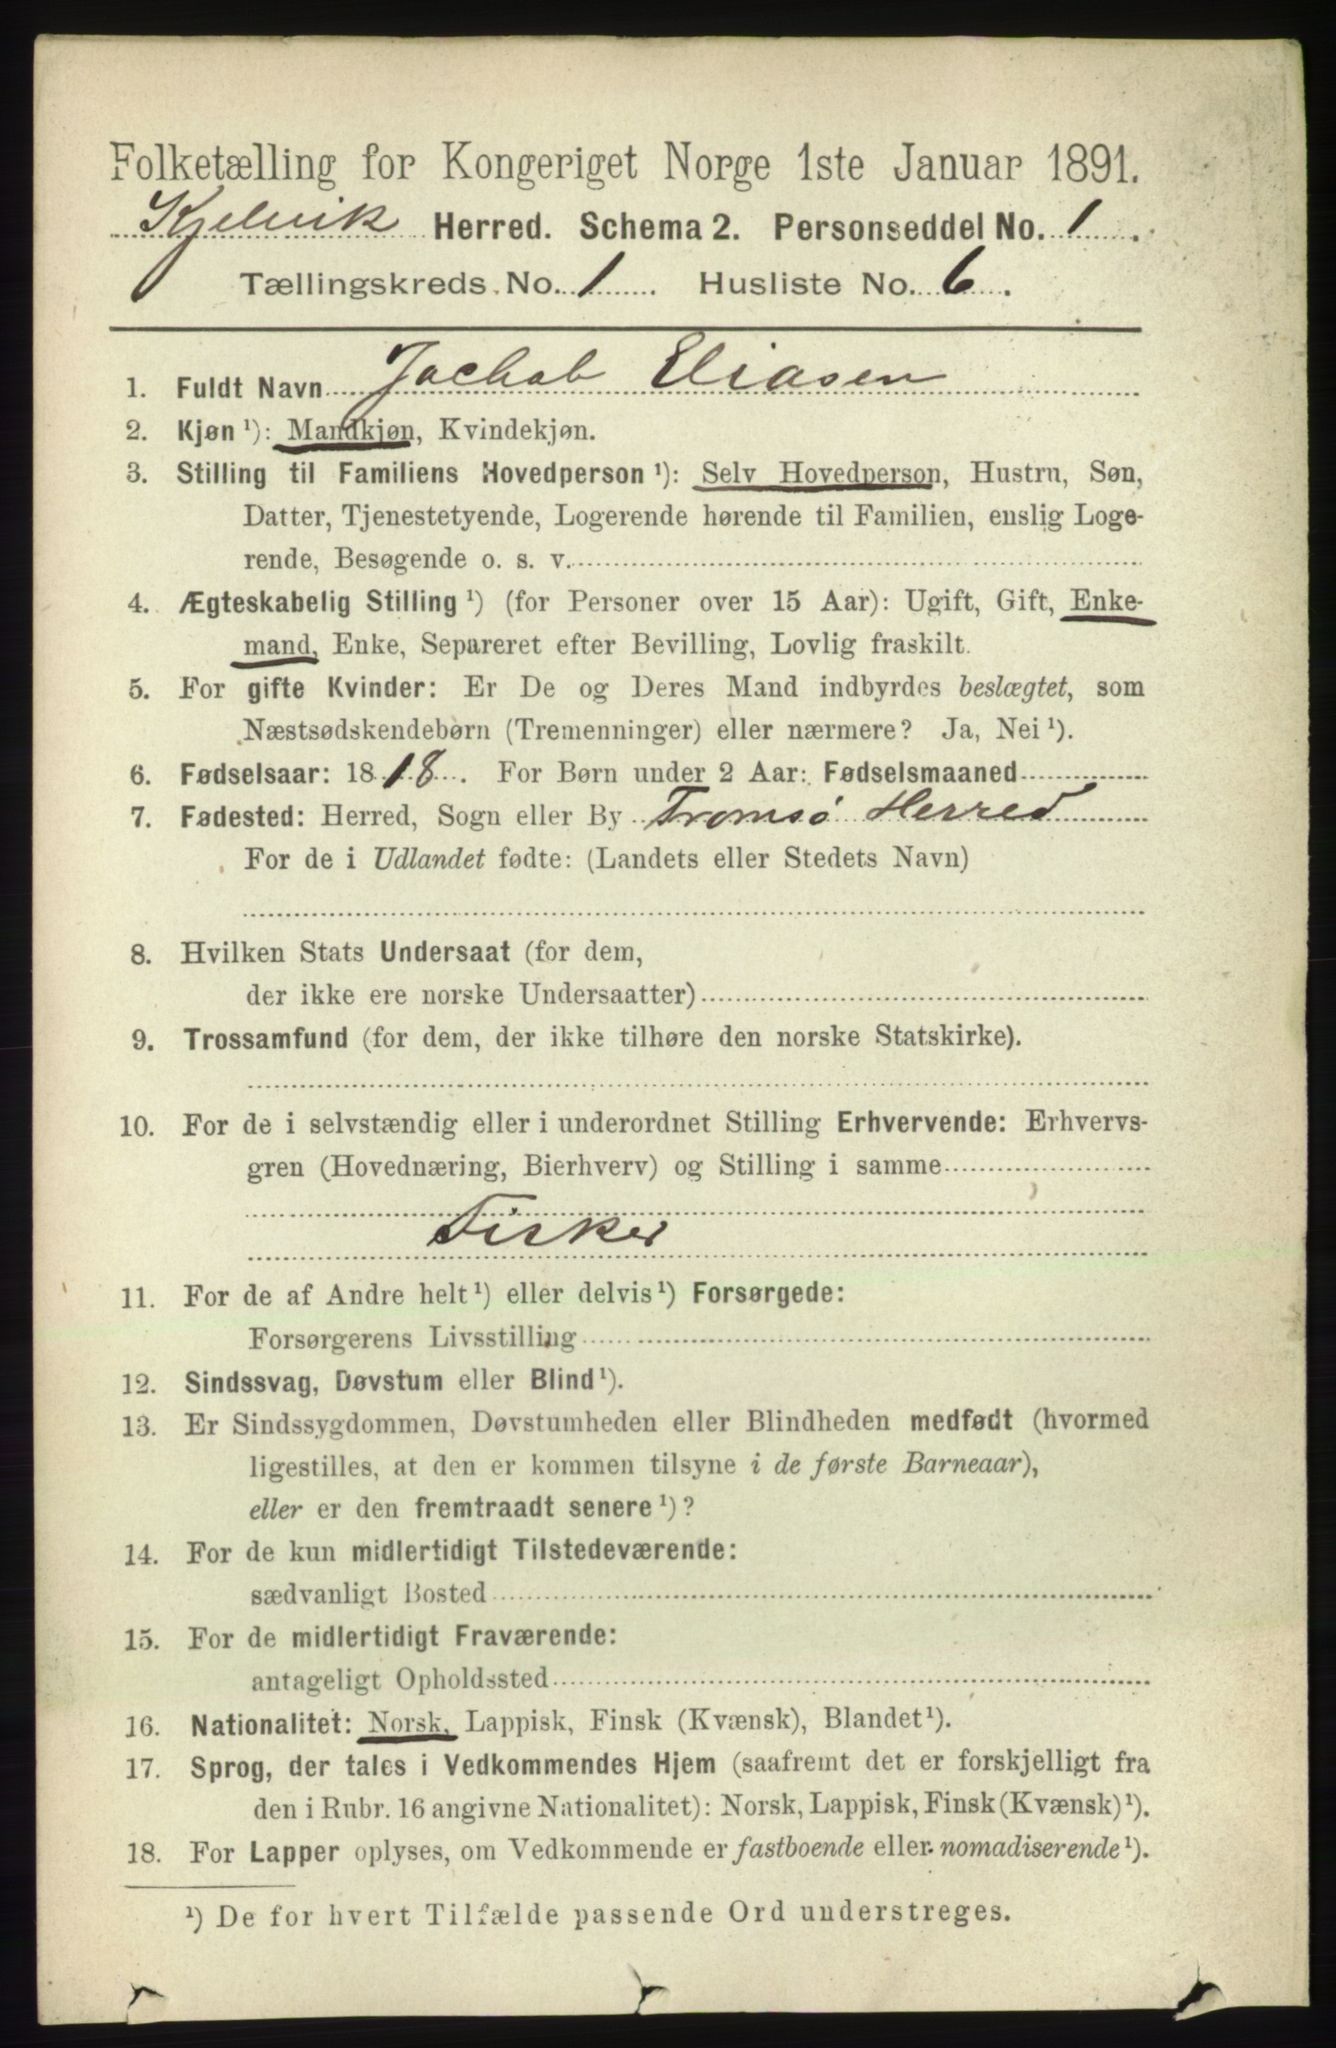 Folketælling for Kongeriget Norge 1ste Januar 1891.
Kjelvik Herred. Schema 2. Personseddel No. 1.
Tællingskreds No. 1. Husliste No. 6.
1. Fuldt Navn Jachob Eliasen
2. Kjøn ¹): Mandkjøn, Kvindekjøn.
3. Stilling til Familiens Hovedperson ¹): Selv Hovedperson, Hustru, Søn,
Datter, Tjenestetyende, Logerende hørende til Familien, enslig Loge-
rende, Besøgende o. s. v.
4. Ægteskabelig Stilling ¹) (for Personer over 15 Aar): Ugift, Gift, Enke-
mand, Enke, Separeret efter Bevilling, Lovlig fraskilt.
5. For gifte Kvinder: Er De og Deres Mand indbyrdes beslægtet, som
Næstsødskendebørn (Tremenninger) eller nærmere? Ja, Nei ¹).
6. Fødselsaar: 1818. For Børn under 2 Aar: Fødselsmaaned
7. Fødested: Herred, Sogn eller By Tromsø Herred
For de i Udlandet fødte: (Landets eller Stedets Navn)
8. Hvilken Stats Undersaat (for dem,
der ikke ere norske Undersaatter)
9. Trossamfund (for dem, der ikke tilhøre den norske Statskirke).
10. For de i selvstændig eller i underordnet Stilling Erhvervende: Erhvervs-
gren (Hovednæring, Bierhverv) og Stilling i samme
Fisker
11. For de af Andre helt ¹) eller delvis ¹) Forsørgede:
Forsørgerens Livsstilling
12. Sindssvag, Døvstum eller Blind ¹).
13. Er Sindssygdommen, Døvstumheden eller Blindheden medfødt (hvormed
ligestilles, at den er kommen tilsyne i de første Barneaar),
eller er den fremtraadt senere ¹)?
14. For de kun midlertidigt Tilstedeværende:
sædvanligt Bosted
15. For de midlertidigt Fraværende:
antageligt Opholdssted
16. Nationalitet: Norsk, Lappisk, Finsk (Kvænsk), Blandet ¹).
17. Sprog, der tales i Vedkommendes Hjem (saafremt det er forskjelligt fra
den i Rubr. 16 angivne Nationalitet): Norsk, Lappisk, Finsk (Kvænsk) ¹).
18. For Lapper oplyses, om Vedkommende er fastboende eller nomadiserende ¹).
¹) De for hvert Tilfælde passende Ord understreges.